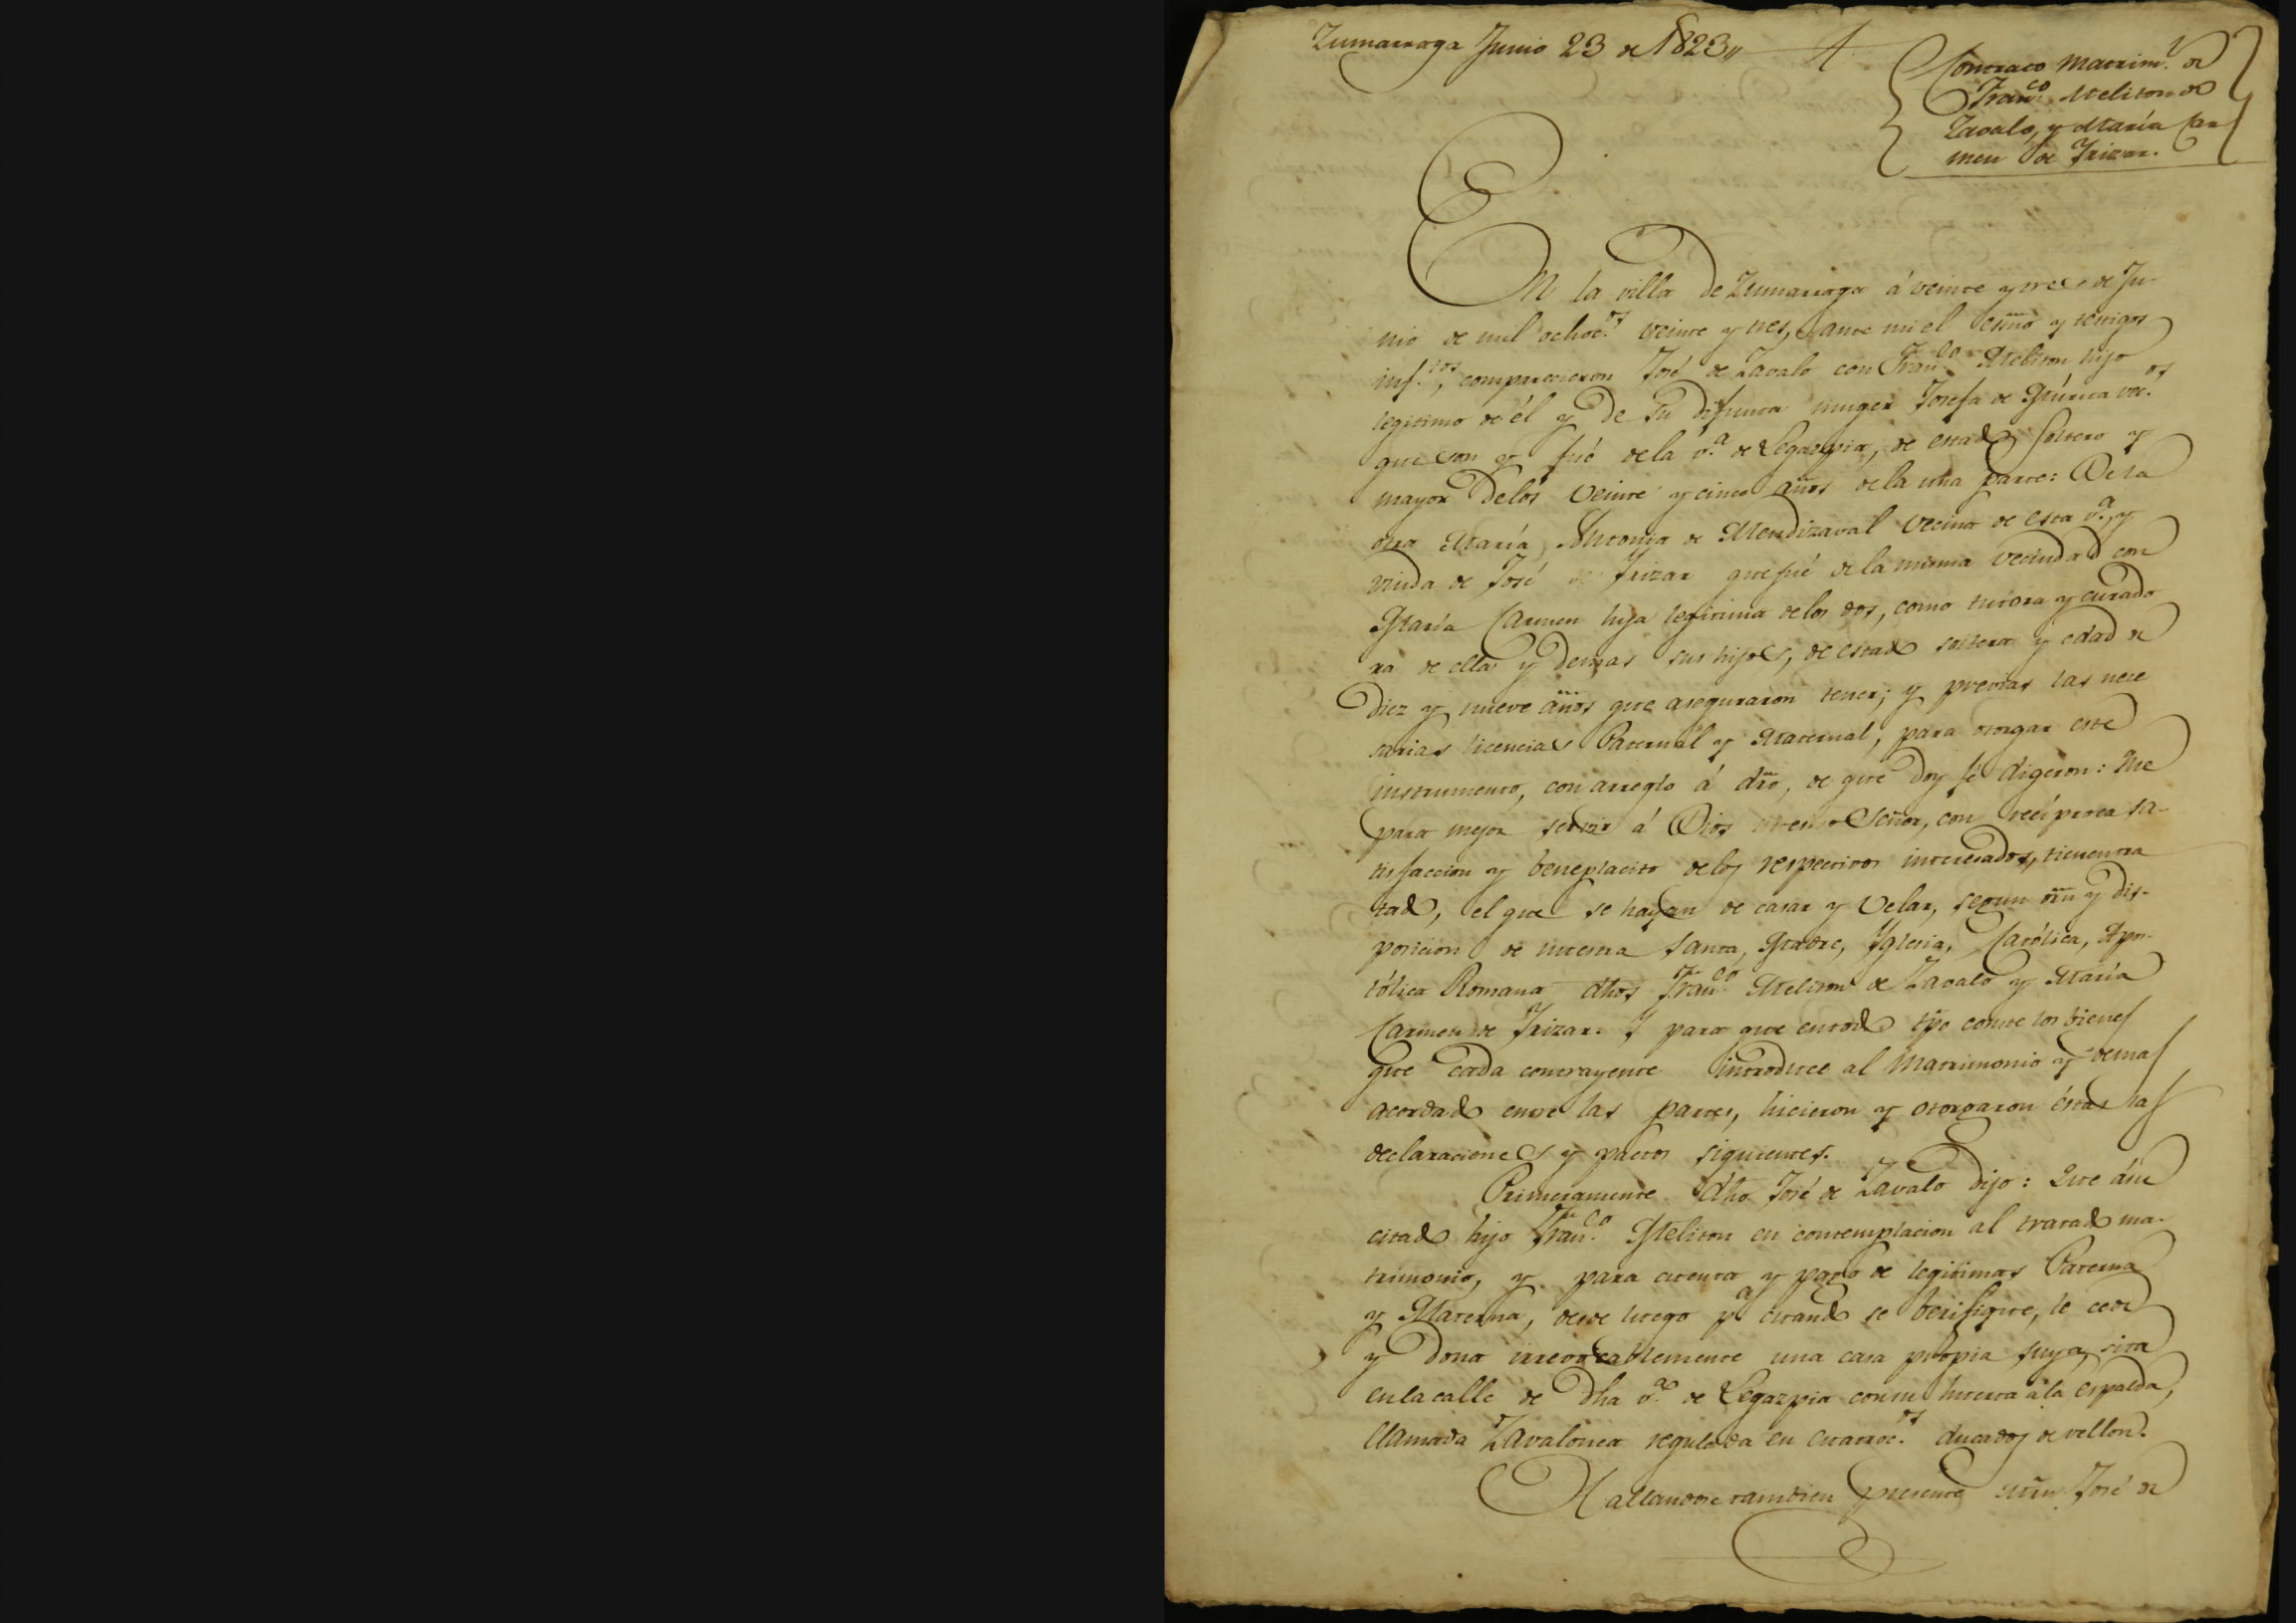 Zumarraga Junio 23 de 1823,,
Contrato Matrim.l de
Fran.co Meliton de
Zavalo, y María Car
men de Yrizar.
En la villa de Zumarraga á veinte y tres de Ju-
nio de mil ochoc.os veinte y tres, ante mi el esño y testigos
inf.tos, comparecieron José de Zavalo con Fran.co Meliton hijo
legitimo de él y de su difunta muger Josefa de vec.os
que son y fué dela v.a de Legazpia, de estado soltero y
mayor delos veinte y cinco años dela una parte: De la
otra María Antonia de Mendizaval vecina de esta v.a, y
viuda de José de Yrizar que fué dela misma vecindad con
María Carmen hija legitima delos dos, como tutora y curado
ra de ella y demas sus hijos, de estado soltera y edad de
diez y nueve años que aseguraron tener; y previas las nece
sarias licencias Paternal y Maternal, para otorgar este
instrumento, con arreglo á dro, de que doy fé digeron: Que
para mejor servir á Dios nuestro Señor, con recíproca sa-
tisfaccion y beneplacito delos respectivos interesados, tienen tra
tado, el que se hayan de casar y velar, segun orn y dis-
posicion de nuestra Santa, Madre, Yglesia, Católica, Apos-
tólica Romana dhos Fran.co Meliton de Zavalo y María
Carmen de Yrizar. Y para que entodo tpo conste los bienes
que cada contrayente introduce al Matrimonio y demas
acordado entre las partes, hicieron y otorgaron éstas las
declaraciones y pactos siguientes.
Primeramente dho José de Zavalo dijo: Que ásu
citado hijo Fran.co Meliton en contemplacion al tratado ma-
trimonio, y para cuenta y pago de legitimas Paterna
y Materna, desde luego p.a cuando se berifique, le cede
y dona irrevocablemente una casa propia suya, sita
enla calle de dha v.a de Legazpia consu huerta a la espalda,
llamada Zavalonea regulada en cuatroc.os ducados de vellon.
Hallandose tambien presente José de